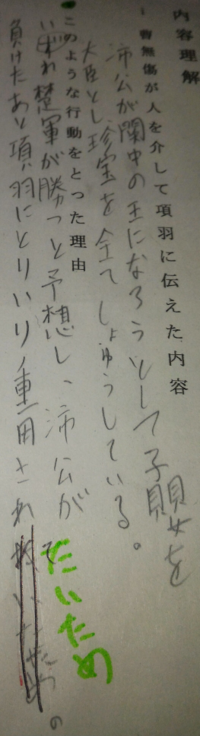 内容理解
1 曹無傷が人を介して項羽に伝えた内容
沛公が関中の王になろうとして子嬰を
大臣とし珍宝を全てしょゆうしている。
このような行動をとった理由
いずれ楚軍が勝つと予想し、沛公が
負けたあと項羽にとりいり重用され
たいため
の